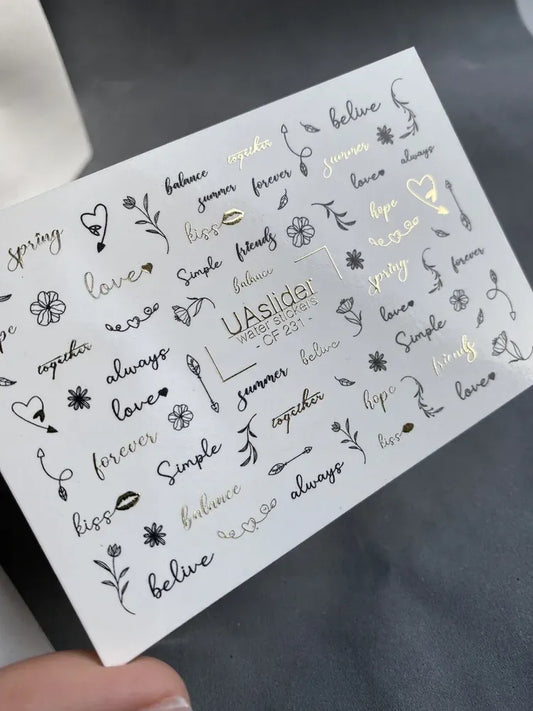 belive
together
balance
summer
always
summer
forever
kiss
love
hope
spring
friends
Simple
love
balance
spring
forever
UAslider
water stickers
- CF 231 -
love
Simple
hope
together
always
belive
friends
love
summer
love
together
hope
forever
Simple
kiss
always
balance
kiss
belive